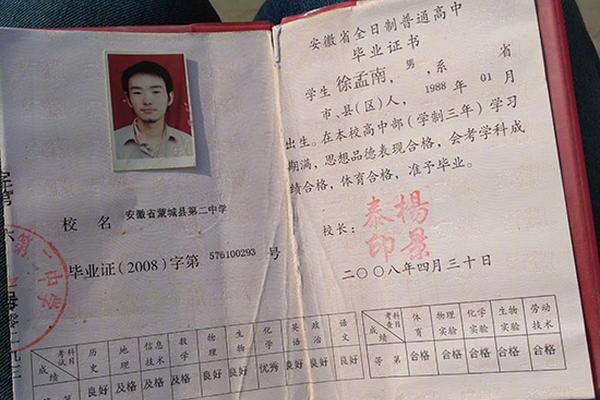 校名 安徽省蒙城县第二中学
毕业证(2008)字第 576100293 号
考试科目 历史 地理 信息技术 数学 物理 生物 化学 英语 政治 语文
成绩 良好 及格 及格 及格 良好 良好 优秀 良好 良好 良好
安徽省全日制普通高中
毕业证书
学生 徐孟南,男,系 省
市、县(区)人,1988 年 01 月
出生。在本校高中部(学制三年)学习
期满,思想品德表现合格,会考学科成
绩合格,体育合格,准予毕业。
校长:
楊景泰印
二〇〇八年四月三十日
考查科目 体育 物理实验 化学实验 生物实验 劳动技术
成绩
等第 合格 合格 合格 合格 合格
第二中学